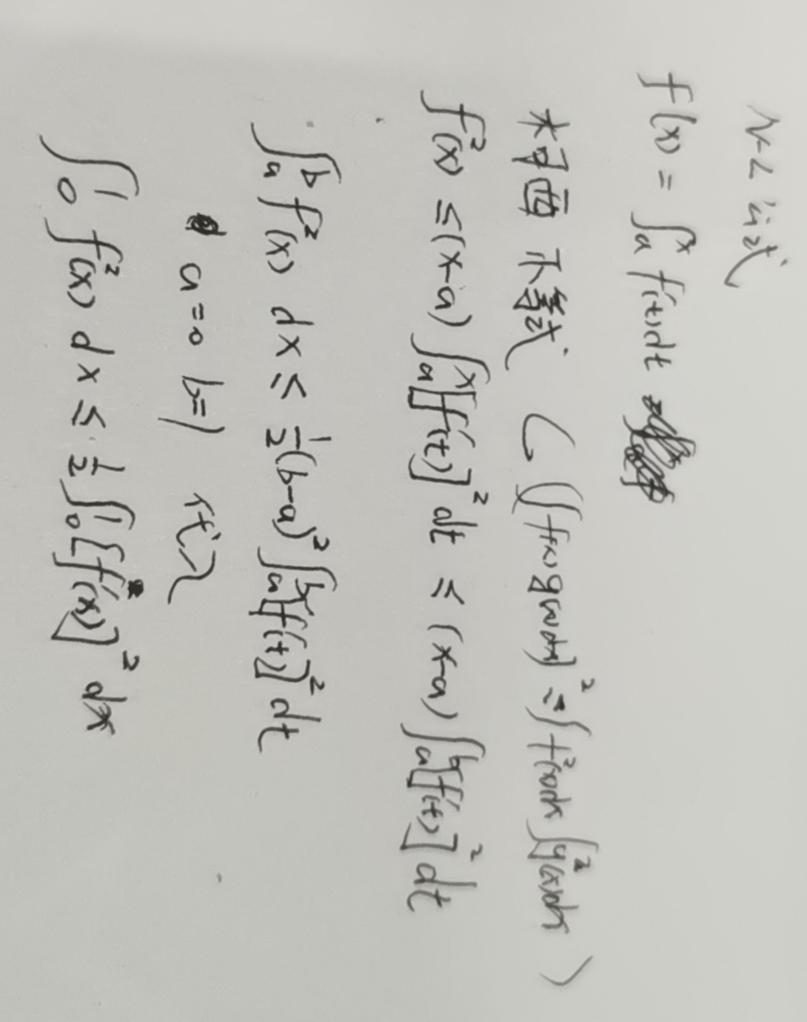 N-L 公式
f(x) = ∫ₐˣ f'(t)dt
柯西不等式 (（∫f(x)g(x)dx)² ≤ ∫f²(x)dx ∫g²(x)dx )
f²(x) ≤ (x-a) ∫ₐˣ[f'(t)]² dt ≤ (x-a) ∫ₐᵇ[f'(t)]² dt
∫ₐᵇ f²(x) dx ≤ ½(b-a)² ∫ₐᵇ[f'(t)]² dt
a=0 b=1 代入
∫₀¹ f²(x) dx ≤ ½ ∫₀¹ [f'(x)]² dx